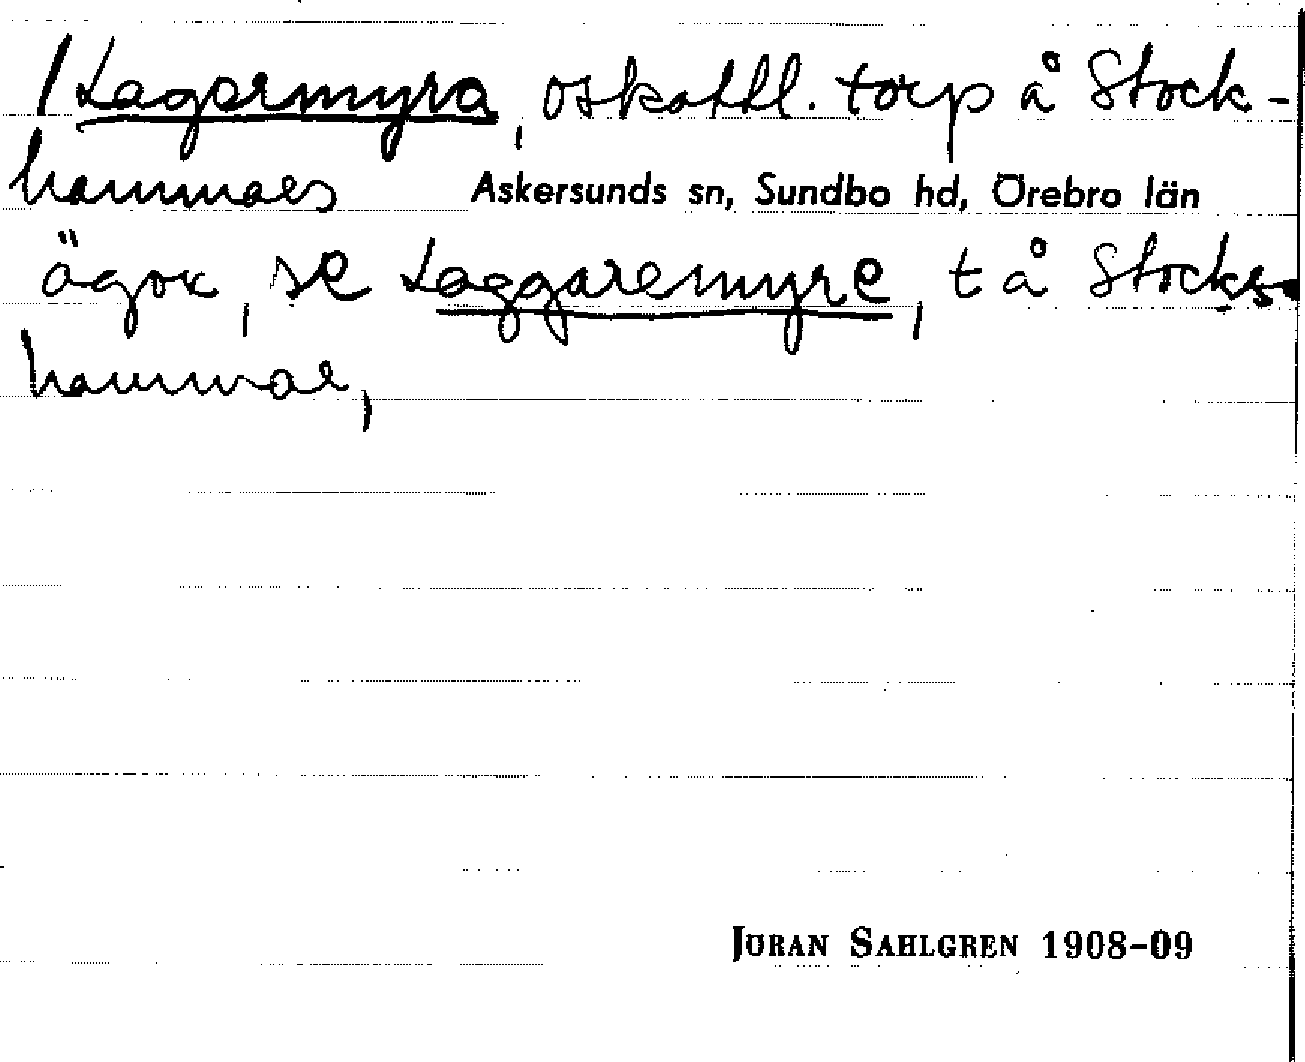 / Lagarmyra, oskattl. torp å Stock-
hammars Askersunds sn, Sundbo hd, Örebro län
ägor, se Laggaremyre, t å Stocks-
hammar,
JÖRAN SAHLGREN 1908-09